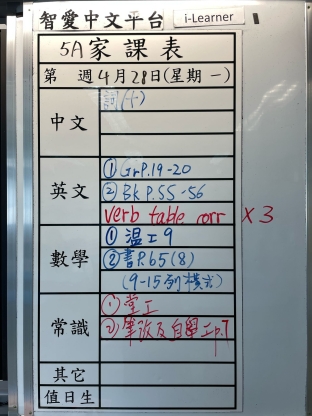 智愛中文平台 i-Learner
5A家課表
第 週4月28日(星期一)
中文 詞(十)
英文 ① Gr P.19-20
② Bk P.55-56
verb table corr × 3
數學 ① 溫工9
② 書P.65(8)
(9-15列橫式)
常識 ① 堂工
② 筆改及自學工p.7
其它
值日生